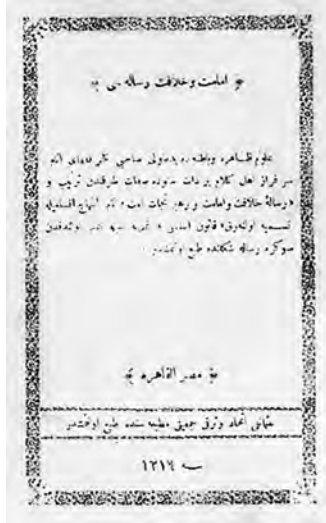 امامت وخلافت رساله سى
علوم ظاهره وباطنه ده يدطولى صاحبى
سر فراز اهل كلام بر ذات ستوده صفات طرفندن ترتيب و
«رسالهٔ خلافت وامامت و رهبر نجات امت»
تسميه اولنه رق «قانون اساسى»
صوكره رساله شكلنده طبع اولنمشدر
مصر القاهره
عثمانلى اتحاد وترقى جمعيتى مطبعه سنده طبع اولنمشدر
سنه ١٣١٦